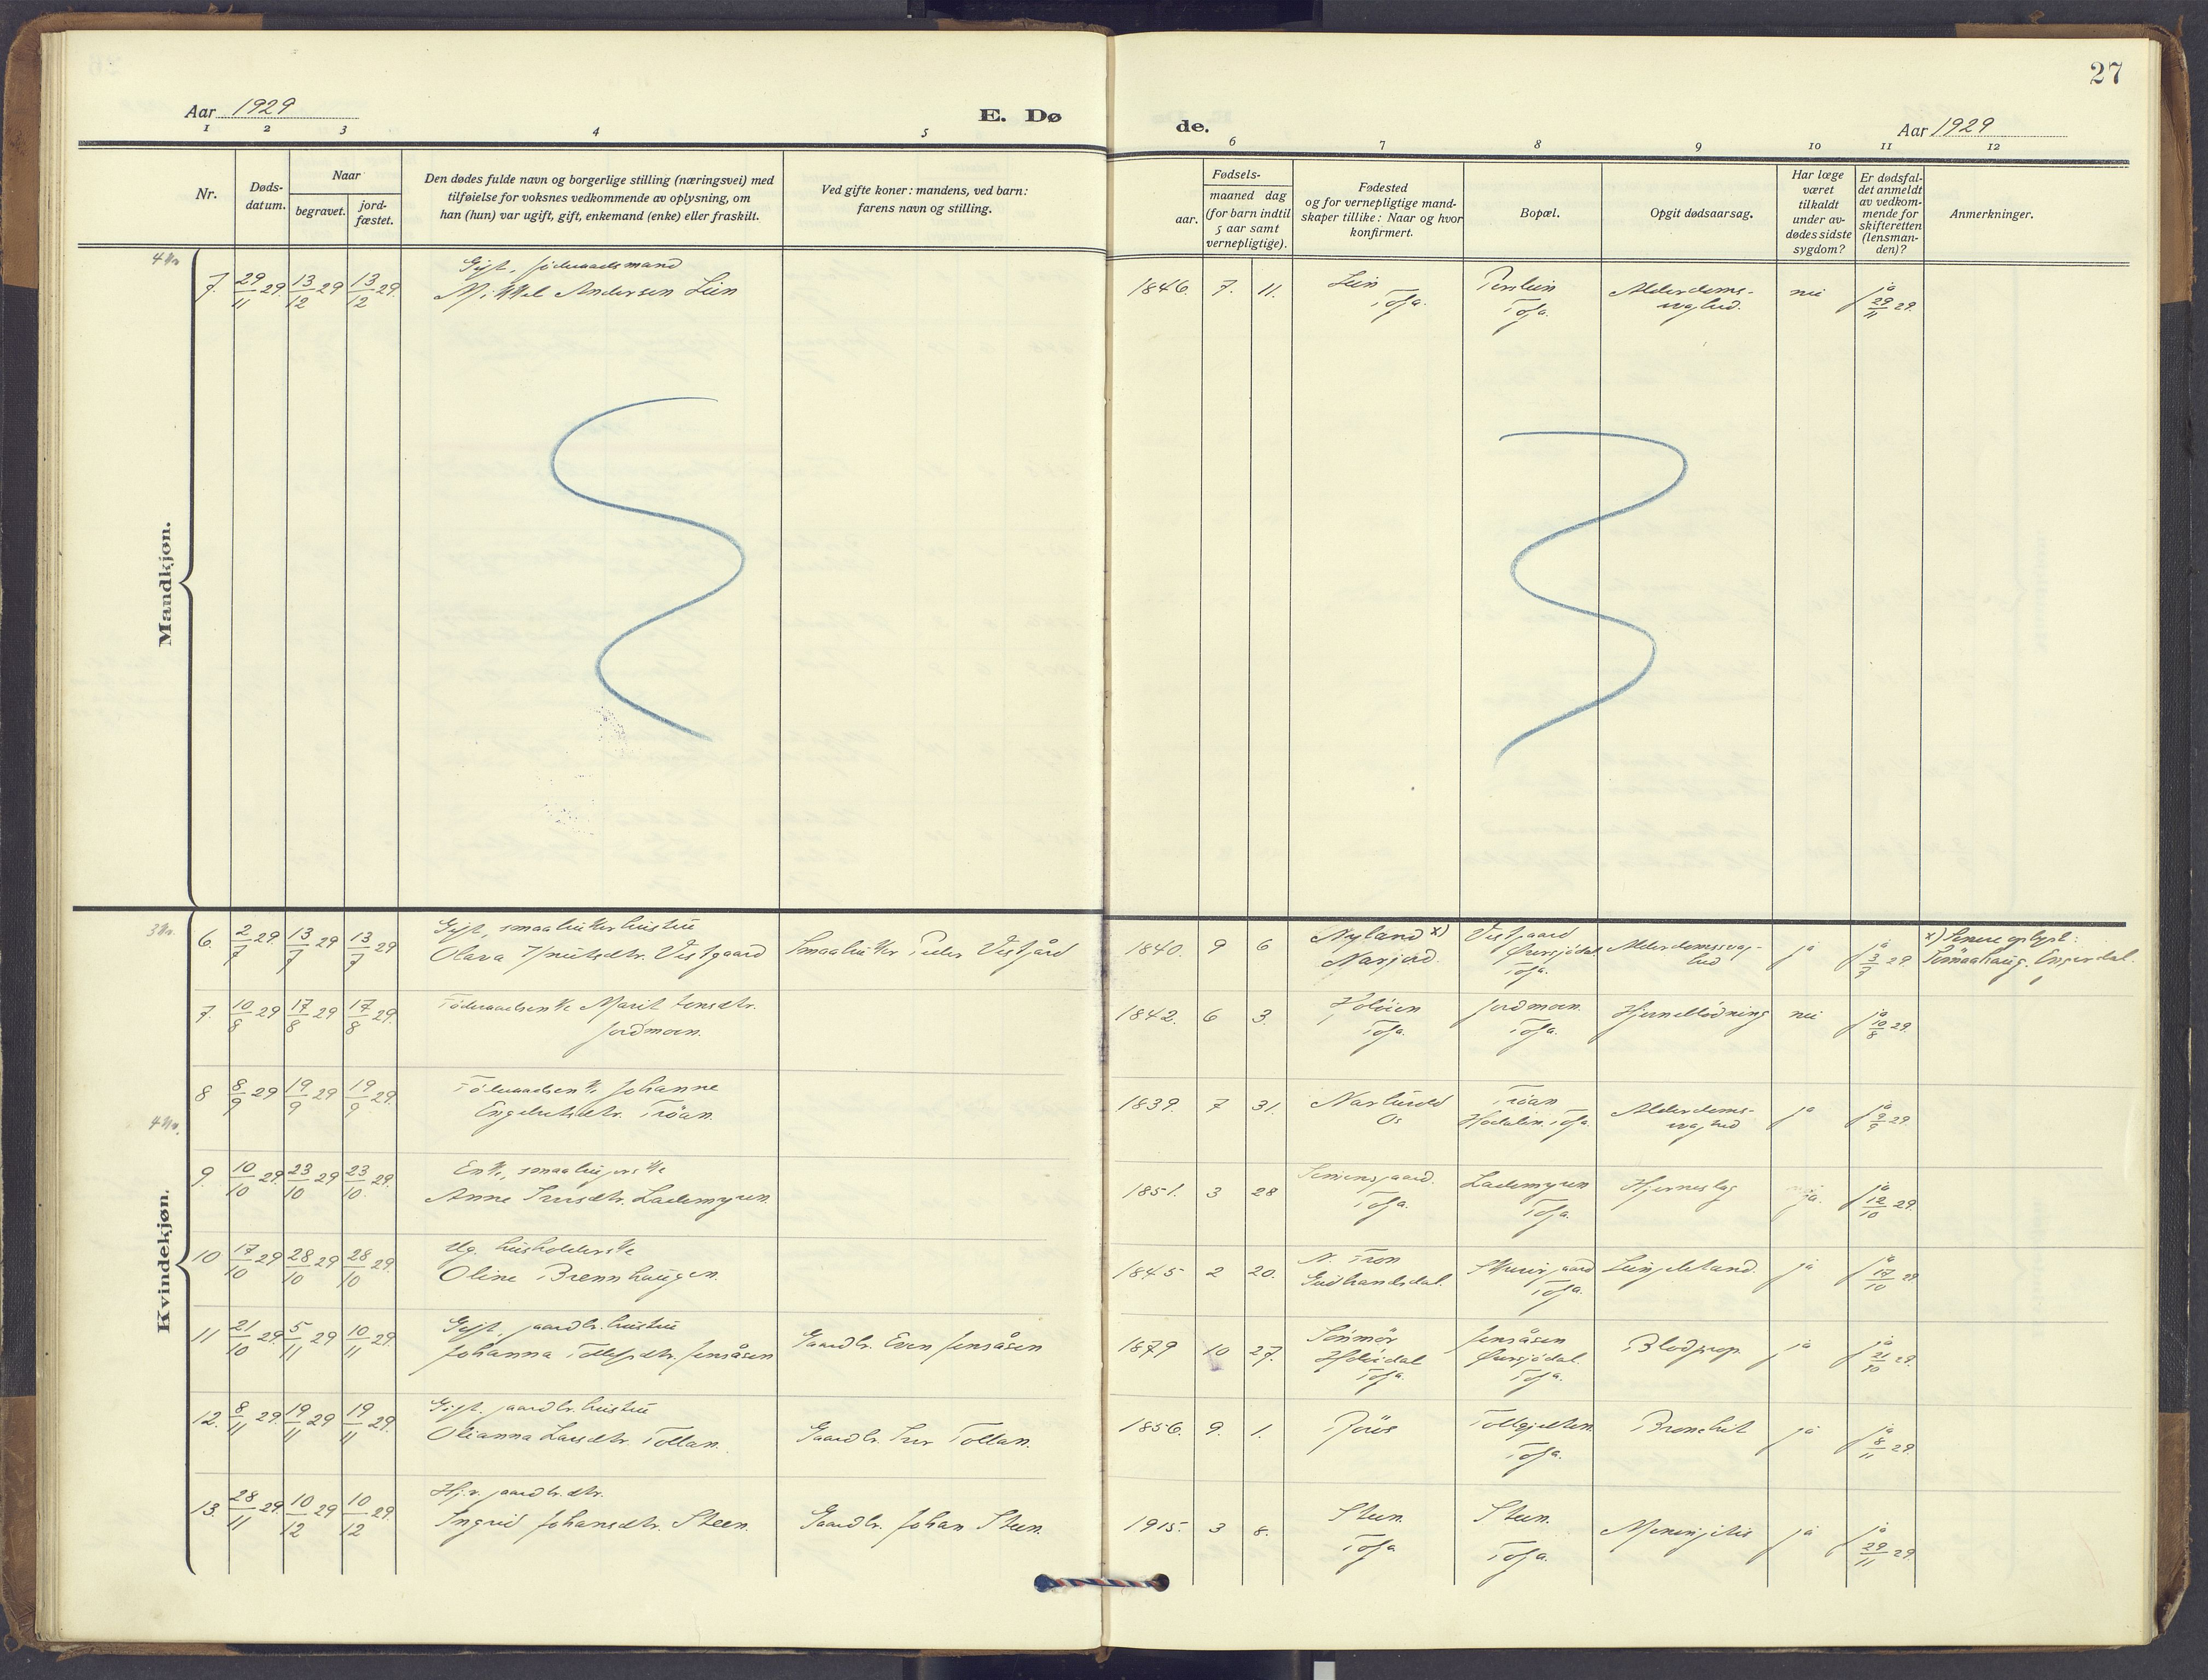 27
Aar 1929
E. Dø
de.
Aar 1929
1 2 3 4 5
6 7 8 9 10 11 12
Nr.
Døds-
datum.
Naar
begravet.
jord-
fæstet.
Den dødes fulde navn og borgerlige stilling (næringsvei) med
tilføielse for voksnes vedkommende av oplysning, om
han (hun) var ugift, gift, enkemand (enke) eller fraskilt.
Ved gifte koner: mandens, ved barn:
farens navn og stilling.
Fødsels-
aar.
maaned dag
(for barn indtil
5 aar samt
vernepligtige).
Fødested
og for vernepligtige mand-
skaper tillike: Naar og hvor
konfirmert.
Bopæl.
Opgit dødsaarsag.
Har læge
været
tilkaldt
under av-
dødes sidste
sygdom?
Er dødsfal-
det anmeldt
av vedkom-
mende for
skifteretten
(lensman-
den)?
Anmerkninger.
Mandkjøn.
4 Kv.
7. 29/11 29. 13/12 29 13/12 29.
Gift, föderaadsmand
Mikkel Andersen Lien
1846. 7. 11.
Lien
Tolga.
Tolga.
Alderdoms-
svaghed.
nei
ja
29/11 29.
Kvindekjøn.
3 Kv.
6. 2/7 29. 13/7 29 13/7 29
Gift, smaabrukerhustru
Olava Knutsdtr. Vestgaard
Smaabruker Peder Vestgård
1840. 9 6
Nyland x)
Narjord.
Vestgaard
Øversjödal
Tolga.
Alderdomssvag-
hed
ja
ja
3/7 29.
x) Senere oplyst:
Engerdal.
7. 10/8 29 17/8 29 17/8 29.
Föderaadsenke Marit Jonsdtr.
Jordmoen.
1842. 6 3.
Holöien
Tolga.
Jordmoen.
Tolga.
Hjerneblödning
nei
ja
10/8 29.
8 8/9 29 19/9 29 19/9 29.
Föderaadsenke Johanne
Engebretsdtr. Tröan.
1839. 7 31.
Narbuvold
Os
Tröan
Hodalen. Tolga.
Alderdoms-
svaghed
ja
ja
9/9 29.
4 Kv.
9. 10/10 29. 23/10 29 23/10 29.
Enke, smaabrugerske
Anne Iversdtr. Lademyren.
1851. 3 28
Simensgaard.
Tolga.
Lademyren
Tolga.
Hjerneslag
ja.
ja
12/10 29.
10 17/10 29 28/10 29 28/10 29.
Ug. husholderske
Oline Brennhaugen.
1845 2 20.
N. Fron
Gudbrandsdal.
Tolga.
Lungebetænd.
ja
ja
17/10 29
11 21/10 29. 5/11 29 10/11 29.
Gift, gaardbr. hustru
Johanna Tollefsdtr. Jensåsen
Gaardbr. Even Jensåsen
1879 10 27.
Holöidal
Tolga.
Jensåsen
Øversjödal.
Tolga.
Blodprop.
ja
ja
21/10 29.
12. 8/11 29. 19/11 29 19/11 29.
Gift. gaardbr. hustru
Olianna Larsdtr. Tollan.
Gaardbr. Iver Tollan.
1856. 9. 1.
Röros
Tolga.
Bronchit
ja
ja
8/11 29.
13. 28/11 29. 10/12 29 10/12 29.
Hj.v. gaardbr. dtr.
Ingrid Johansdtr. Steen.
Gaardbr. Johan Steen.
1915. 3 8.
Steen.
Tolga
Steen.
Tolga.
Meningitis
ja
ja
29/11 29.